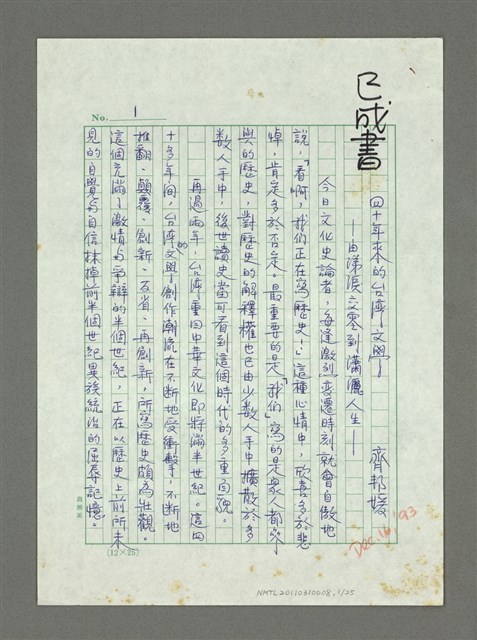 已成書
No. 1
四十年來的台湾文學
—由涕淚文零到瀟灑人生—
齊邦媛
Dec. 16 '93
今日文化史論者,每逢激烈变遷時刻就會自傲地
說,「看啊,我們正在寫歷史!」這種心情中,欣喜多於悲
悼,肯定多於否定。最重要的是「我們」寫的是眾人都參
與的歷史,對歷史的解釋權也已由少数人手中擴散於多
数人手中,後世讀史當可看到這個時代的多重面貌。
再過兩年,台湾重回中華文化即將滿半世紀。這四
十多年间,台湾的文學創作潮流在不断地受衝擊,不断地
推翻、顛覆、創新、反省、再創新,所寫歷史頗為壯觀。
這個充滿了激情与爭辯的半個世紀,正在以歷史上前所未
見的自覺与自信抹掉前半個世紀異族統治的屈辱記憶。
(12×25)
NMTL20110310008, 1/25